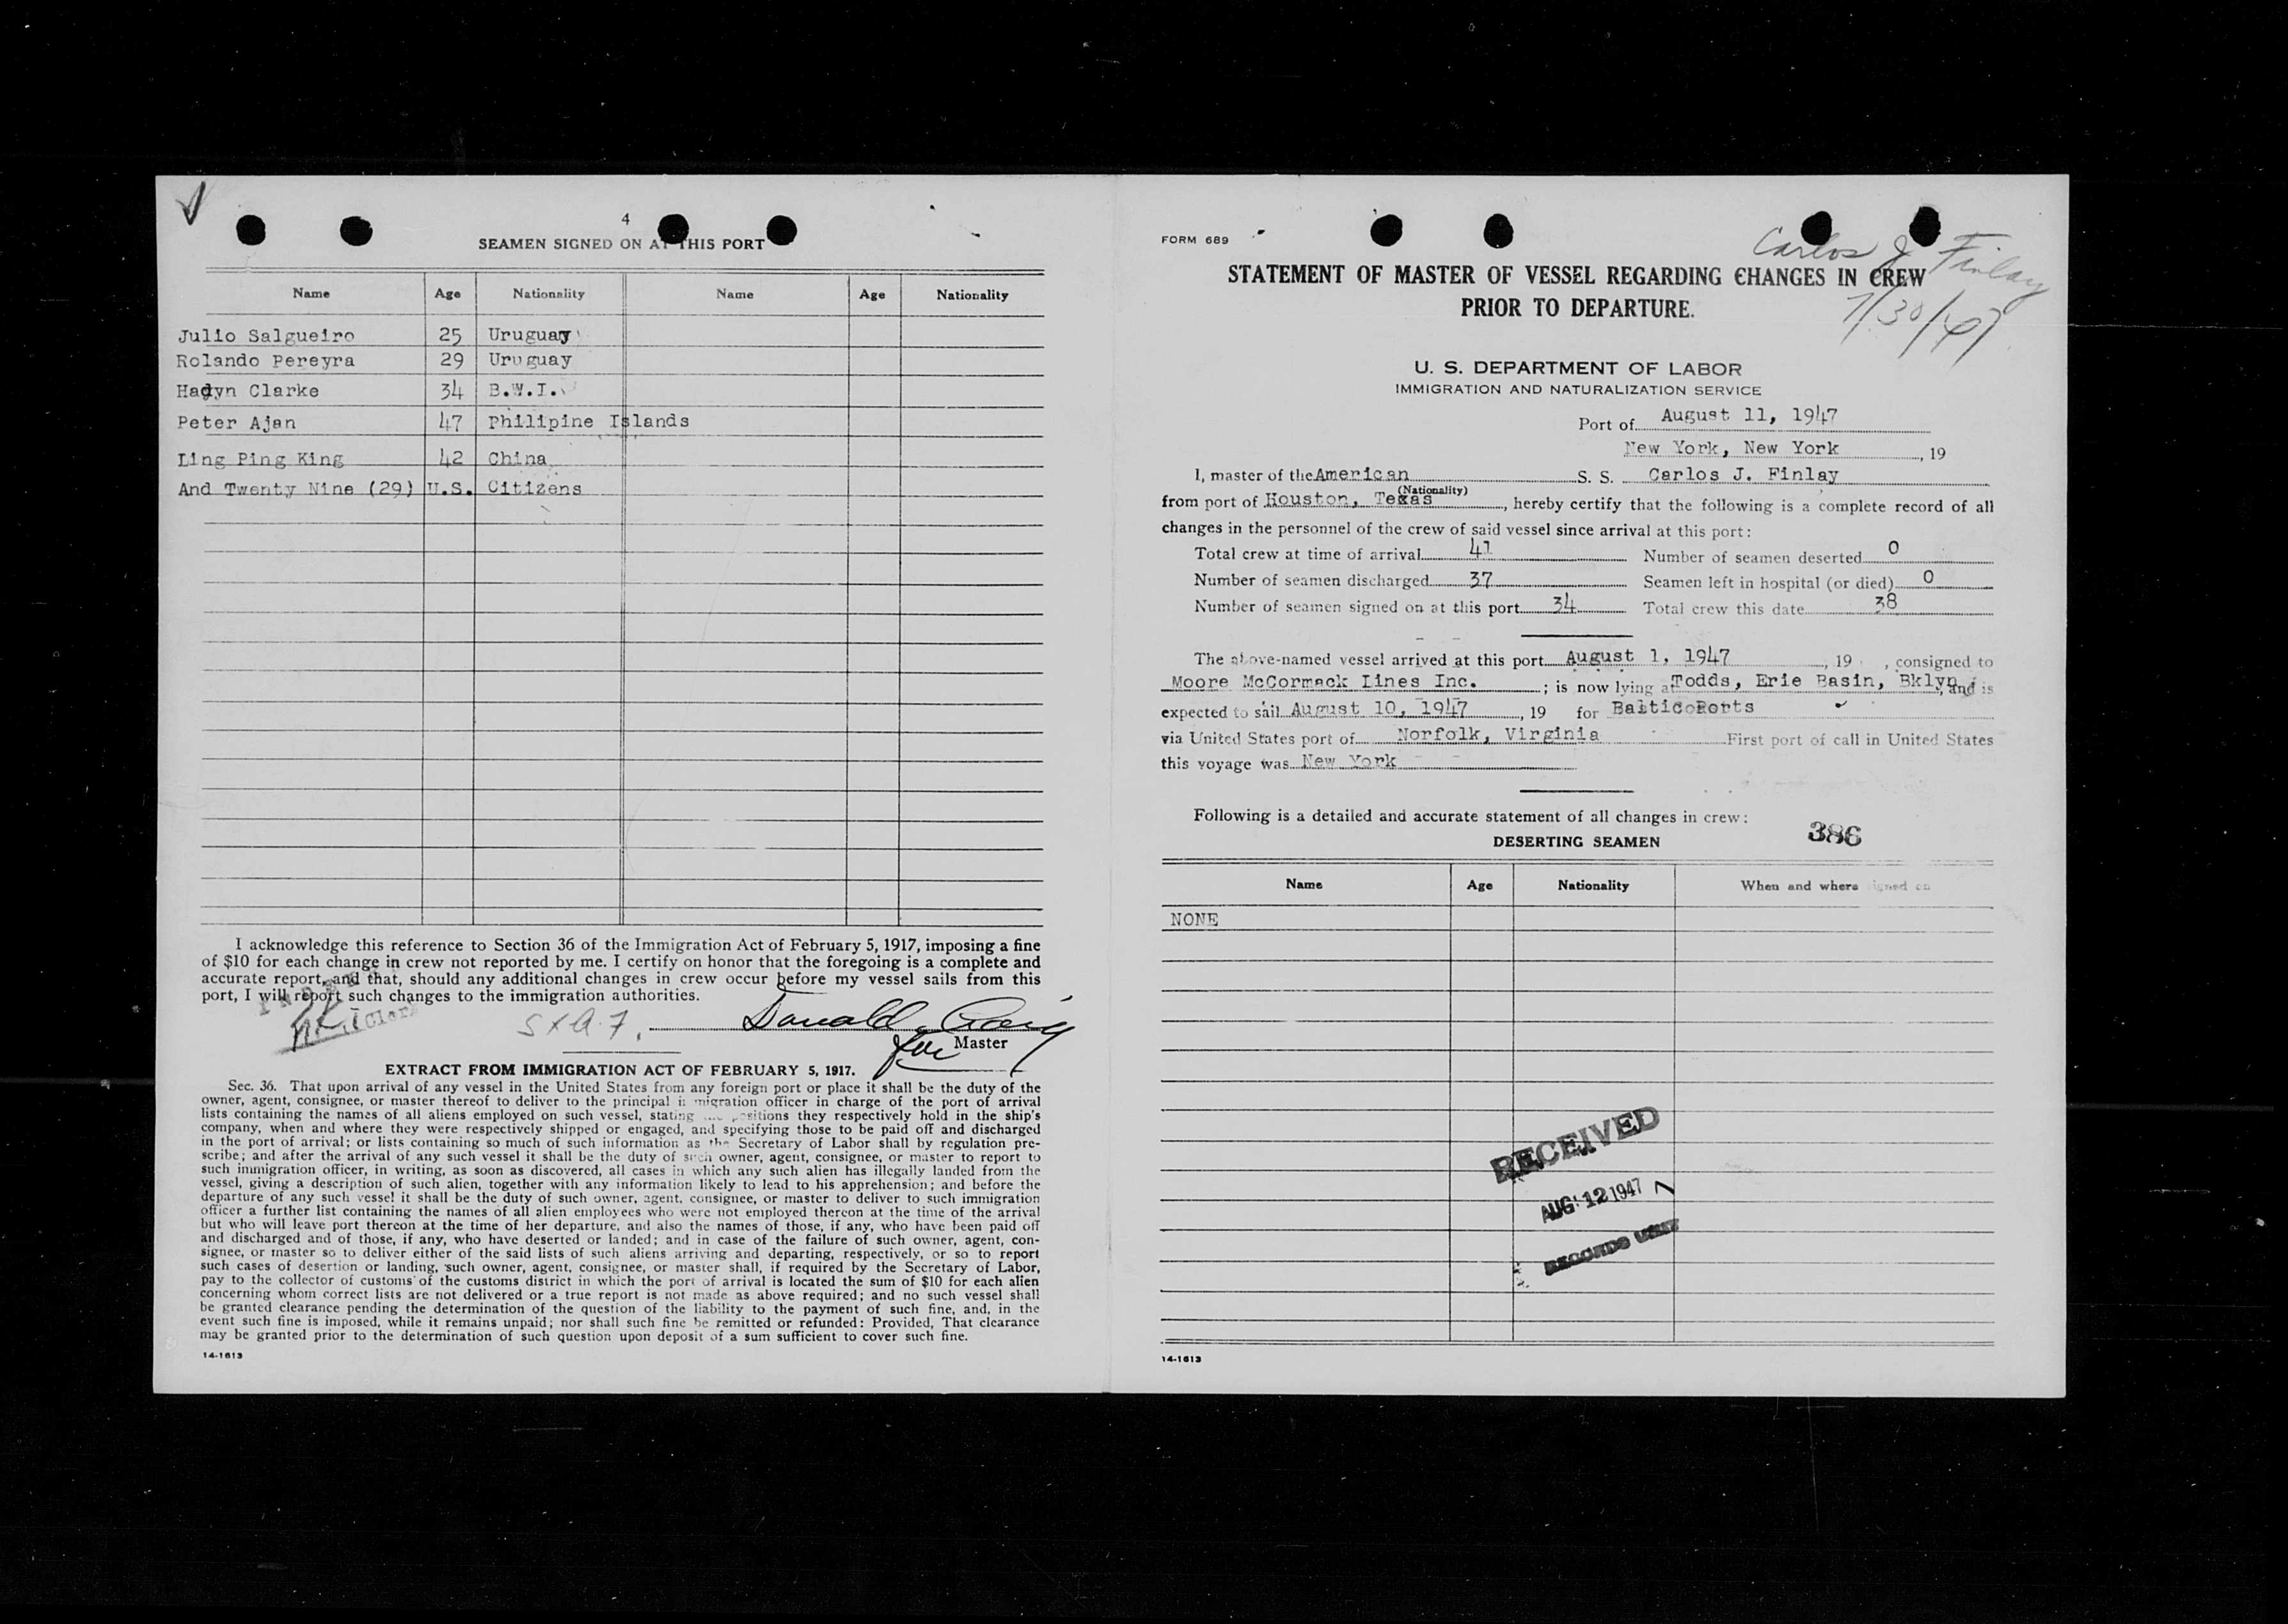 4
SEAMEN SIGNED ON AT THIS PORT
Name Age Nationality Name Age Nationality
Julio Salgueiro 25 Uruguay
Rolando Pereyra 29 Uruguay
Hadyn Clarke 34 B.W.I.
Peter Ajan 47 Philipine Islands
Ling Ping King 42 China
And Twenty Nine (29) U.S. Citizens
I acknowledge this reference to Section 36 of the Immigration Act of February 5, 1917, imposing a fine
of $10 for each change in crew not reported by me. I certify on honor that the foregoing is a complete and
accurate report, and that, should any additional changes in crew occur before my vessel sails from this
port, I will report such changes to the immigration authorities.
Donald Craig
for Master
EXTRACT FROM IMMIGRATION ACT OF FEBRUARY 5, 1917.
Sec. 36. That upon arrival of any vessel in the United States from any foreign port or place it shall be the duty of the
owner, agent, consignee, or master thereof to deliver to the principal immigration officer in charge of the port of arrival
lists containing the names of all aliens employed on such vessel, stating positions they respectively hold in the ship's
company, when and where they were respectively shipped or engaged, and specifying those to be paid off and discharged
in the port of arrival; or lists containing so much of such information as the Secretary of Labor shall by regulation pre-
scribe; and after the arrival of any such vessel it shall be the duty of such owner, agent, consignee, or master to report to
such immigration officer, in writing, as soon as discovered, all cases in which any such alien has illegally landed from the
vessel, giving a description of such alien, together with any information likely to lead to his apprehension; and before the
departure of any such vessel it shall be the duty of such owner, agent, consignee, or master to deliver to such immigration
officer a further list containing the names of all alien employees who were not employed thereon at the time of the arrival
but who will leave port thereon at the time of her departure, and also the names of those, if any, who have been paid off
and discharged and of those, if any, who have deserted or landed; and in case of the failure of such owner, agent, con-
signee, or master so to deliver either of the said lists of such aliens arriving and departing, respectively, or so to report
such cases of desertion or landing, such owner, agent, consignee, or master shall, if required by the Secretary of Labor,
pay to the collector of customs of the customs district in which the port of arrival is located the sum of $10 for each alien
concerning whom correct lists are not delivered or a true report is not made as above required; and no such vessel shall
be granted clearance pending the determination of the question of the liability to the payment of such fine, and, in the
event such fine is imposed, while it remains unpaid; nor shall such fine be remitted or refunded: Provided, That clearance
may be granted prior to the determination of such question upon deposit of a sum sufficient to cover such fine.
14-1613
FORM 689
Carlos J. Finlay
7/30/47
STATEMENT OF MASTER OF VESSEL REGARDING CHANGES IN CREW
PRIOR TO DEPARTURE.
U. S. DEPARTMENT OF LABOR
IMMIGRATION AND NATURALIZATION SERVICE
Port of August 11, 1947
New York, New York, 19
I, master of the American S. S. Carlos J. Finlay
(Nationality)
from port of Houston, Texas, hereby certify that the following is a complete record of all
changes in the personnel of the crew of said vessel since arrival at this port:
Total crew at time of arrival 41 Number of seamen deserted 0
Number of seamen discharged 37 Seamen left in hospital (or died) 0
Number of seamen signed on at this port 34 Total crew this date 38
The above-named vessel arrived at this port August 1, 1947, 19 , consigned to
Moore McCormack Lines Inc. ; is now lying at Todds, Erie Basin, Bklyn, and is
expected to sail August 10, 1947, 19 for Baltic Ports
via United States port of Norfolk, Virginia First port of call in United States
this voyage was New York
Following is a detailed and accurate statement of all changes in crew:
386
DESERTING SEAMEN
Name Age Nationality When and where signed on
NONE
RECEIVED
AUG 12 1947
RECORDS UNIT
14-1613